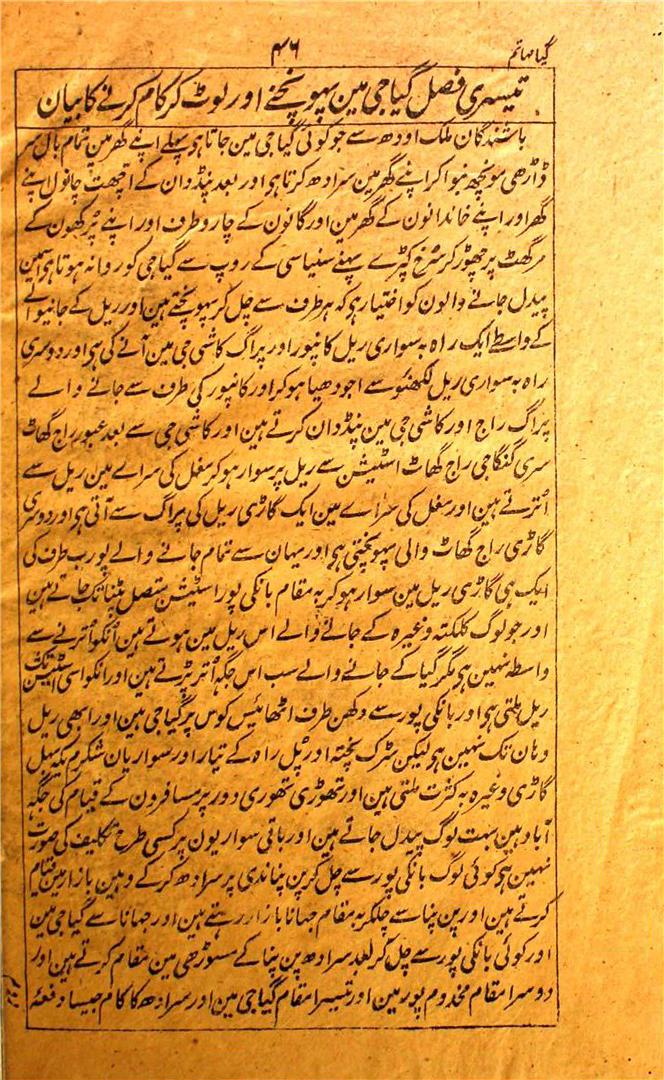 گیا مہاتم
۴۶
تیسری فصل گیاجی مین پہونچنے اور لوٹ کر کام کرنے کا بیان
باشندگان ملک اودھ سے جو کوئی گیاجی مین جاتا ہی پہلے اپنے گھر مین تمام بال سر
ڈاڑھی مونچھ بنوا کر اپنے گھر مین سرادھ کرتا ہی اور بعد پنڈدان کے اچھت چانول اپنے
گھر اور اپنے خاندانون کے گھر مین اور گانون کے چارو طرف اور اپنے پرکھون کے
مرگھٹ پر چھوڑ کر سرخ کپڑے پہنے سنیاسی کے روپ سے گیاجی کو روانہ ہوتا ہی اسمین
پیدل جانے والون کو اختیار ہی کہ ہر طرف سے چل کر پہونچتے ہین اور ریل کے جانیوالے
کے واسطے ایک راہ بہ سواری ریل کانپور اور پراگ کاشی جی مین آنے کی ہی اور دوسری
راہ بہ سواری ریل لکھنؤ سے اجودھیا ہو کر اور کانپور کی طرف سے جانے والے
پراگ راج اور کاشی جی مین پنڈدان کرتے ہین اور کاشی جی سے بعد عبور راج گھاٹ
سری گنگاجی راج گھاٹ اسٹیشن سے ریل پر سوار ہو کر مغل کی سراے مین ریل سے
اترتے ہین اور مغل کی سراے مین ایک گاڑی ریل کی پراگ سے آتی ہی اور دوسری
گاڑی راج گھاٹ والی پہونچتی ہی اور یہان سے تمام جانے والے پورب طرف کی
ایک ہی گاڑی ریل مین سوار ہو کر بہ مقام بانکی پور اسٹیشن متصل پٹنا تک جاتے ہین
اور جو لوگ کلکتہ وغیرہ کے جانے والے اس ریل مین ہوتے ہین انکو اترنے سے
واسطہ نہین ہی مگر گیا کے جانے والے سب اس جگہ اتر پڑتے ہین اور انکو اسی اسٹیشن تک
ریل ملتی ہی اور بانکی پور سے دکھن طرف اٹھائیس کوس پر گیاجی ہین اور ابھی ریل
وہان تک نہین ہی لیکن سڑک پختہ اور پل راہ کے تیار اور سواریان شکرم یکہ بہل
گاڑی وغیرہ بہ کثرت ملتی ہین اور تھوڑی تھوری دور پر مسافرون کے قیام کی جگہ
آباد ہین بہت لوگ پیدل جاتے ہین اور باقی سواریون پر کسی طرح تکلیف کی صورت
نہین ہی کوئی لوگ بانکی پور سے چل کر پن پنا ندی پر سرادھ کرکے وہین بازار مین قیام
کرتے ہین اور پن پنا سے چلکر بہ مقام جہانا بازار رہتے ہین اور جہانا سے گیاجی مین
اور کوئی بانکی پور سے چل کر بعد سرادھ پن پنا کے مسوڑھی مین مقام کرتے ہین اور
دوسرا مقام مخدوم پور مین اور تیسرا مقام گیاجی مین اور سرادھ کا کام جیسا دفعہ